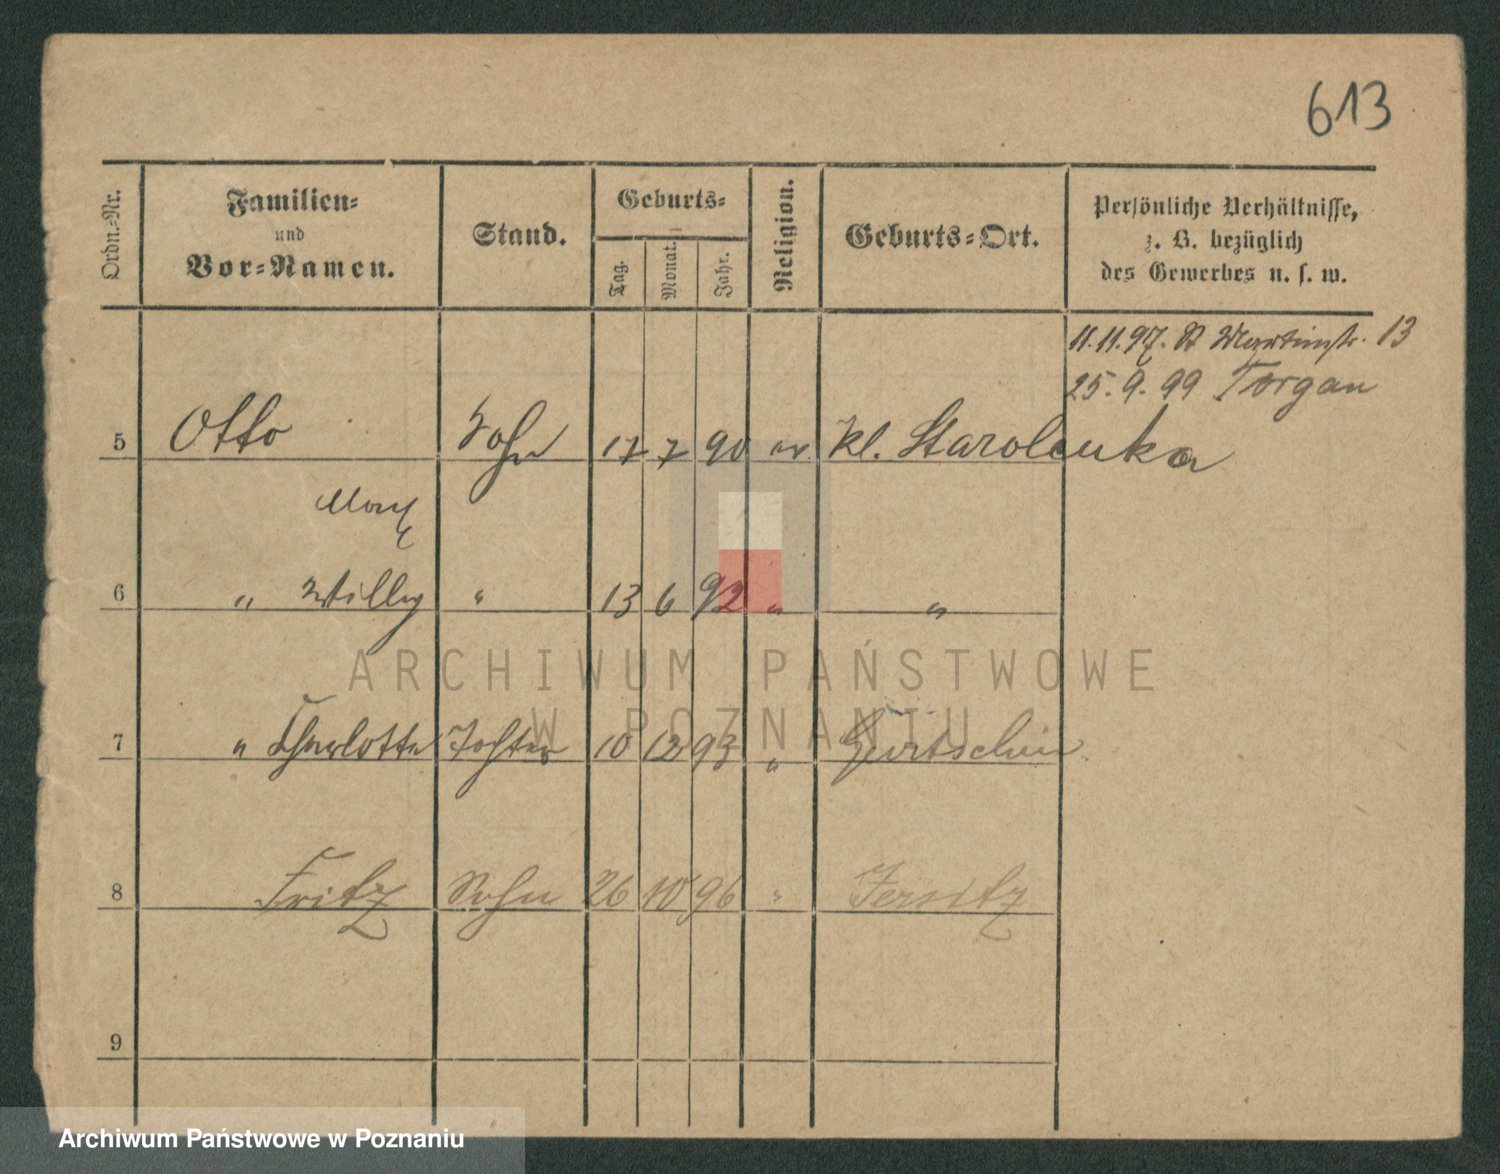 613
Ordn.-Nr.
Familien-
und
Vor-Namen.
Stand.
Geburts-
Tag.
Monat.
Jahr.
Religion.
Geburts-Ort.
Persönliche Verhältnisse,
z. B. bezüglich
des Gewerbes u. s. w.
11.11.97. St Martinstr. 13
25.9.99 Torgau
5 Otto Sohn 17 7 90 ev. Kl. Starolenka
Max
6 " Willy " 13 6 92 " "
ARCHIWUM PAŃSTWOWE
W POZNANIU
7 " Charlotte Tochter 10 12 93 " Gurtschin
8 Fritz Sohn 26 10 96 " Jersitz
9
Archiwum Państwowe w Poznaniu